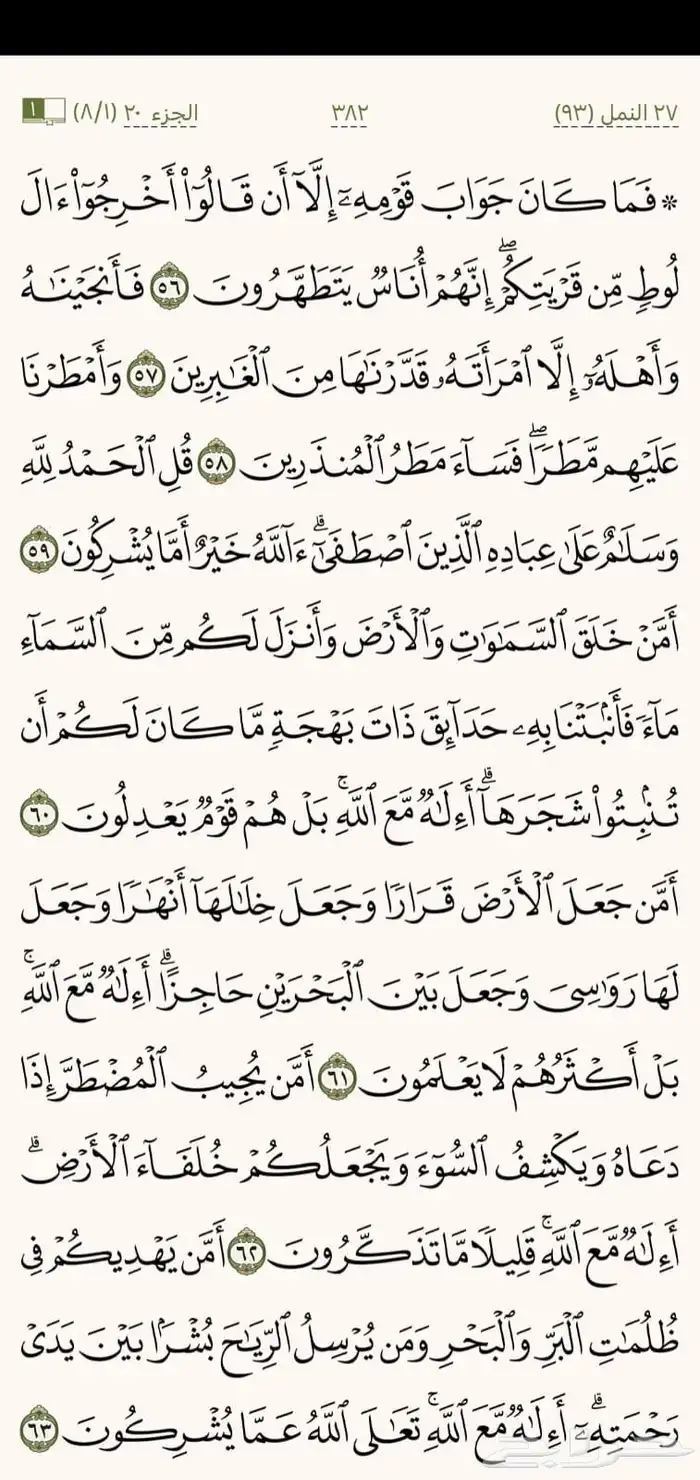 ٢٧ النمل (٩٣) ٣٨٢ الجزء ٢٠ (٨/١) ١
* فَمَا كَانَ جَوَابَ قَوْمِهِۦٓ إِلَّآ أَن قَالُوٓاْ أَخۡرِجُوٓاْ ءَالَ
لُوطٖ مِّن قَرۡيَتِكُمۡۖ إِنَّهُمۡ أُنَاسٞ يَتَطَهَّرُونَ ٥٦ فَأَنجَيۡنَٰهُ
وَأَهۡلَهُۥٓ إِلَّا ٱمۡرَأَتَهُۥ قَدَّرۡنَٰهَا مِنَ ٱلۡغَٰبِرِينَ ٥٧ وَأَمۡطَرۡنَا
عَلَيۡهِم مَّطَرٗاۖ فَسَآءَ مَطَرُ ٱلۡمُنذَرِينَ ٥٨ قُلِ ٱلۡحَمۡدُ لِلَّهِ
وَسَلَٰمٌ عَلَىٰ عِبَادِهِ ٱلَّذِينَ ٱصۡطَفَىٰٓۗ ءَآللَّهُ خَيۡرٌ أَمَّا يُشۡرِكُونَ ٥٩
أَمَّنۡ خَلَقَ ٱلسَّمَٰوَٰتِ وَٱلۡأَرۡضَ وَأَنزَلَ لَكُم مِّنَ ٱلسَّمَآءِ
مَآءٗ فَأَنۢبَتۡنَا بِهِۦ حَدَآئِقَ ذَاتَ بَهۡجَةٖ مَّا كَانَ لَكُمۡ أَن
تُنۢبِتُواْ شَجَرَهَآۗ أَءِلَٰهٞ مَّعَ ٱللَّهِۚ بَلۡ هُمۡ قَوۡمٞ يَعۡدِلُونَ ٦٠
أَمَّن جَعَلَ ٱلۡأَرۡضَ قَرَارٗا وَجَعَلَ خِلَٰلَهَآ أَنۡهَٰرٗا وَجَعَلَ
لَهَا رَوَٰسِيَ وَجَعَلَ بَيۡنَ ٱلۡبَحۡرَيۡنِ حَاجِزًاۗ أَءِلَٰهٞ مَّعَ ٱللَّهِۚ
بَلۡ أَكۡثَرُهُمۡ لَا يَعۡلَمُونَ ٦١ أَمَّن يُجِيبُ ٱلۡمُضۡطَرَّ إِذَا
دَعَاهُ وَيَكۡشِفُ ٱلسُّوٓءَ وَيَجۡعَلُكُمۡ خُلَفَآءَ ٱلۡأَرۡضِۗ
أَءِلَٰهٞ مَّعَ ٱللَّهِۚ قَلِيلٗا مَّا تَذَكَّرُونَ ٦٢ أَمَّن يَهۡدِيكُمۡ فِي
ظُلُمَٰتِ ٱلۡبَرِّ وَٱلۡبَحۡرِ وَمَن يُرۡسِلُ ٱلرِّيَٰحَ بُشۡرَۢا بَيۡنَ يَدَيۡ
رَحۡمَتِهِۦٓۗ أَءِلَٰهٞ مَّعَ ٱللَّهِۚ تَعَٰلَى ٱللَّهُ عَمَّا يُشۡرِكُونَ ٦٣
حراج